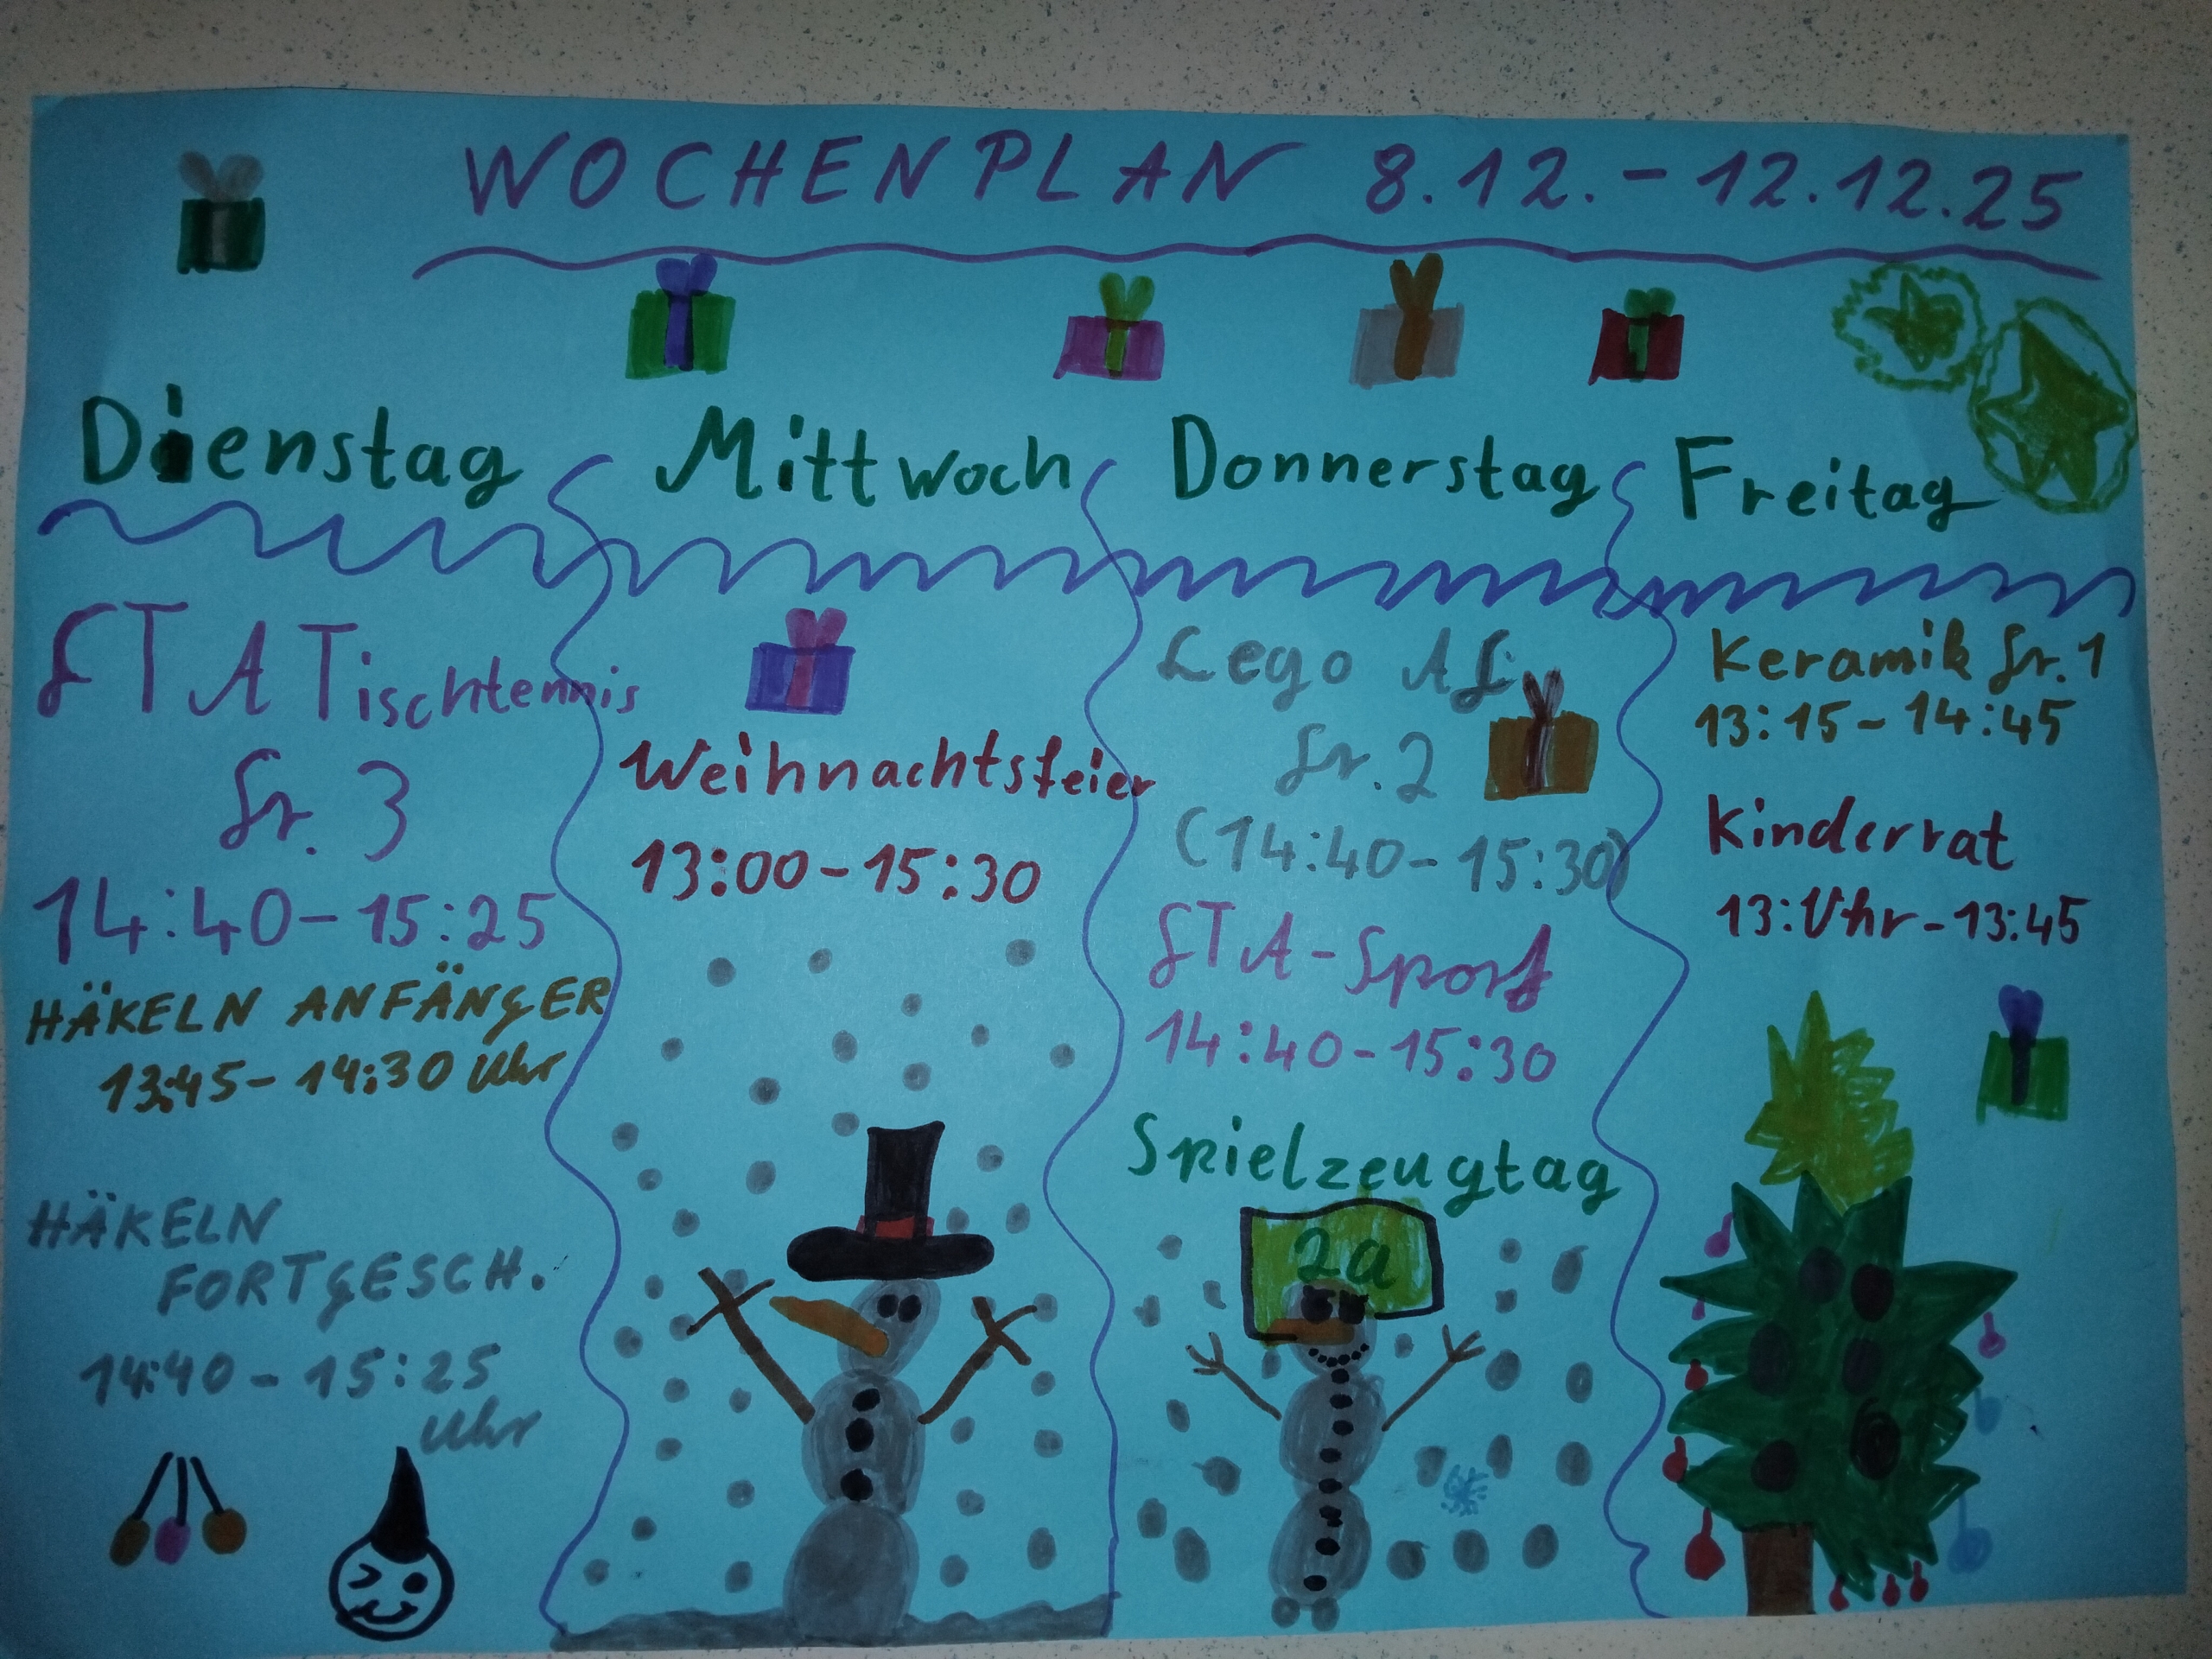 WOCHENPLAN 8.12.-12.12.25
Dienstag
GTA Tischtennis
Gr. 3
14:40-15:25
HÄKELN ANFÄNGER
13:45-14:30 Uhr
HÄKELN
FORTGESCH.
14:40-15:25
Uhr
Mittwoch
Weihnachtsfeier
13:00-15:30
Donnerstag
Lego AG
Gr. 2
(14:40-15:30)
GTA-Sport
14:40-15:30
Spielzeugtag
2a
Freitag
Keramik Gr. 1
13:15-14:45
Kinderrat
13:Uhr-13:45